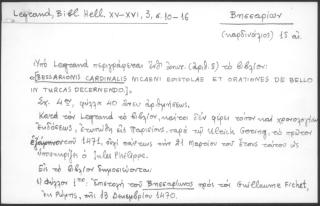 Legrand, Bibl. Hell. XV-XVI, 3, σ. 10-16
Βησσαρίων
(καρδινάλιος) 15 αἰ.
Ὑπὸ Legrand περιγράφεται (ἀρ. 5) τὸ βιβλίον:
«[BESSARIONIS CARDINALIS NICAENI EPISTOLAE ET ORATIONES DE BELLO
IN TURCAS DECERNENDO.]»
Σχ. 4ον, φύλλα 40 ἄνευ ἀριθμήσεως.
Κατὰ τὸν Legrand τὸ βιβλίον, καίτοι δὲν φέρει τόπον καὶ χρονολογίαν
ἐκδόσεως, ἐτυπώθη εἰς Παρισίους, παρὰ τῷ Ulrich Gering, τὸ πρῶτον
ἑξάμηνον τοῦ 1471, ὄχι πάντως τὴν 21 Μαρτίου τοῦ ἔτους τούτου ὡς
ὑποστηρίζει ὁ Jules Philippe.
Εἰς τὸ βιβλίον δημοσιεύονται
1) Φύλλον 1ον, Ἐπιστολὴ τοῦ Βησσαρίωνος πρὸς τὸν Guillaume Fichet,
ἐκ Ρώμης, τῇ 13 Δεκεμβρίου 1470.